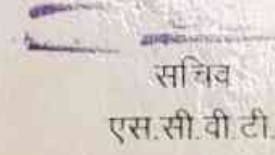 सचिव
एस.सी.वी.टी.